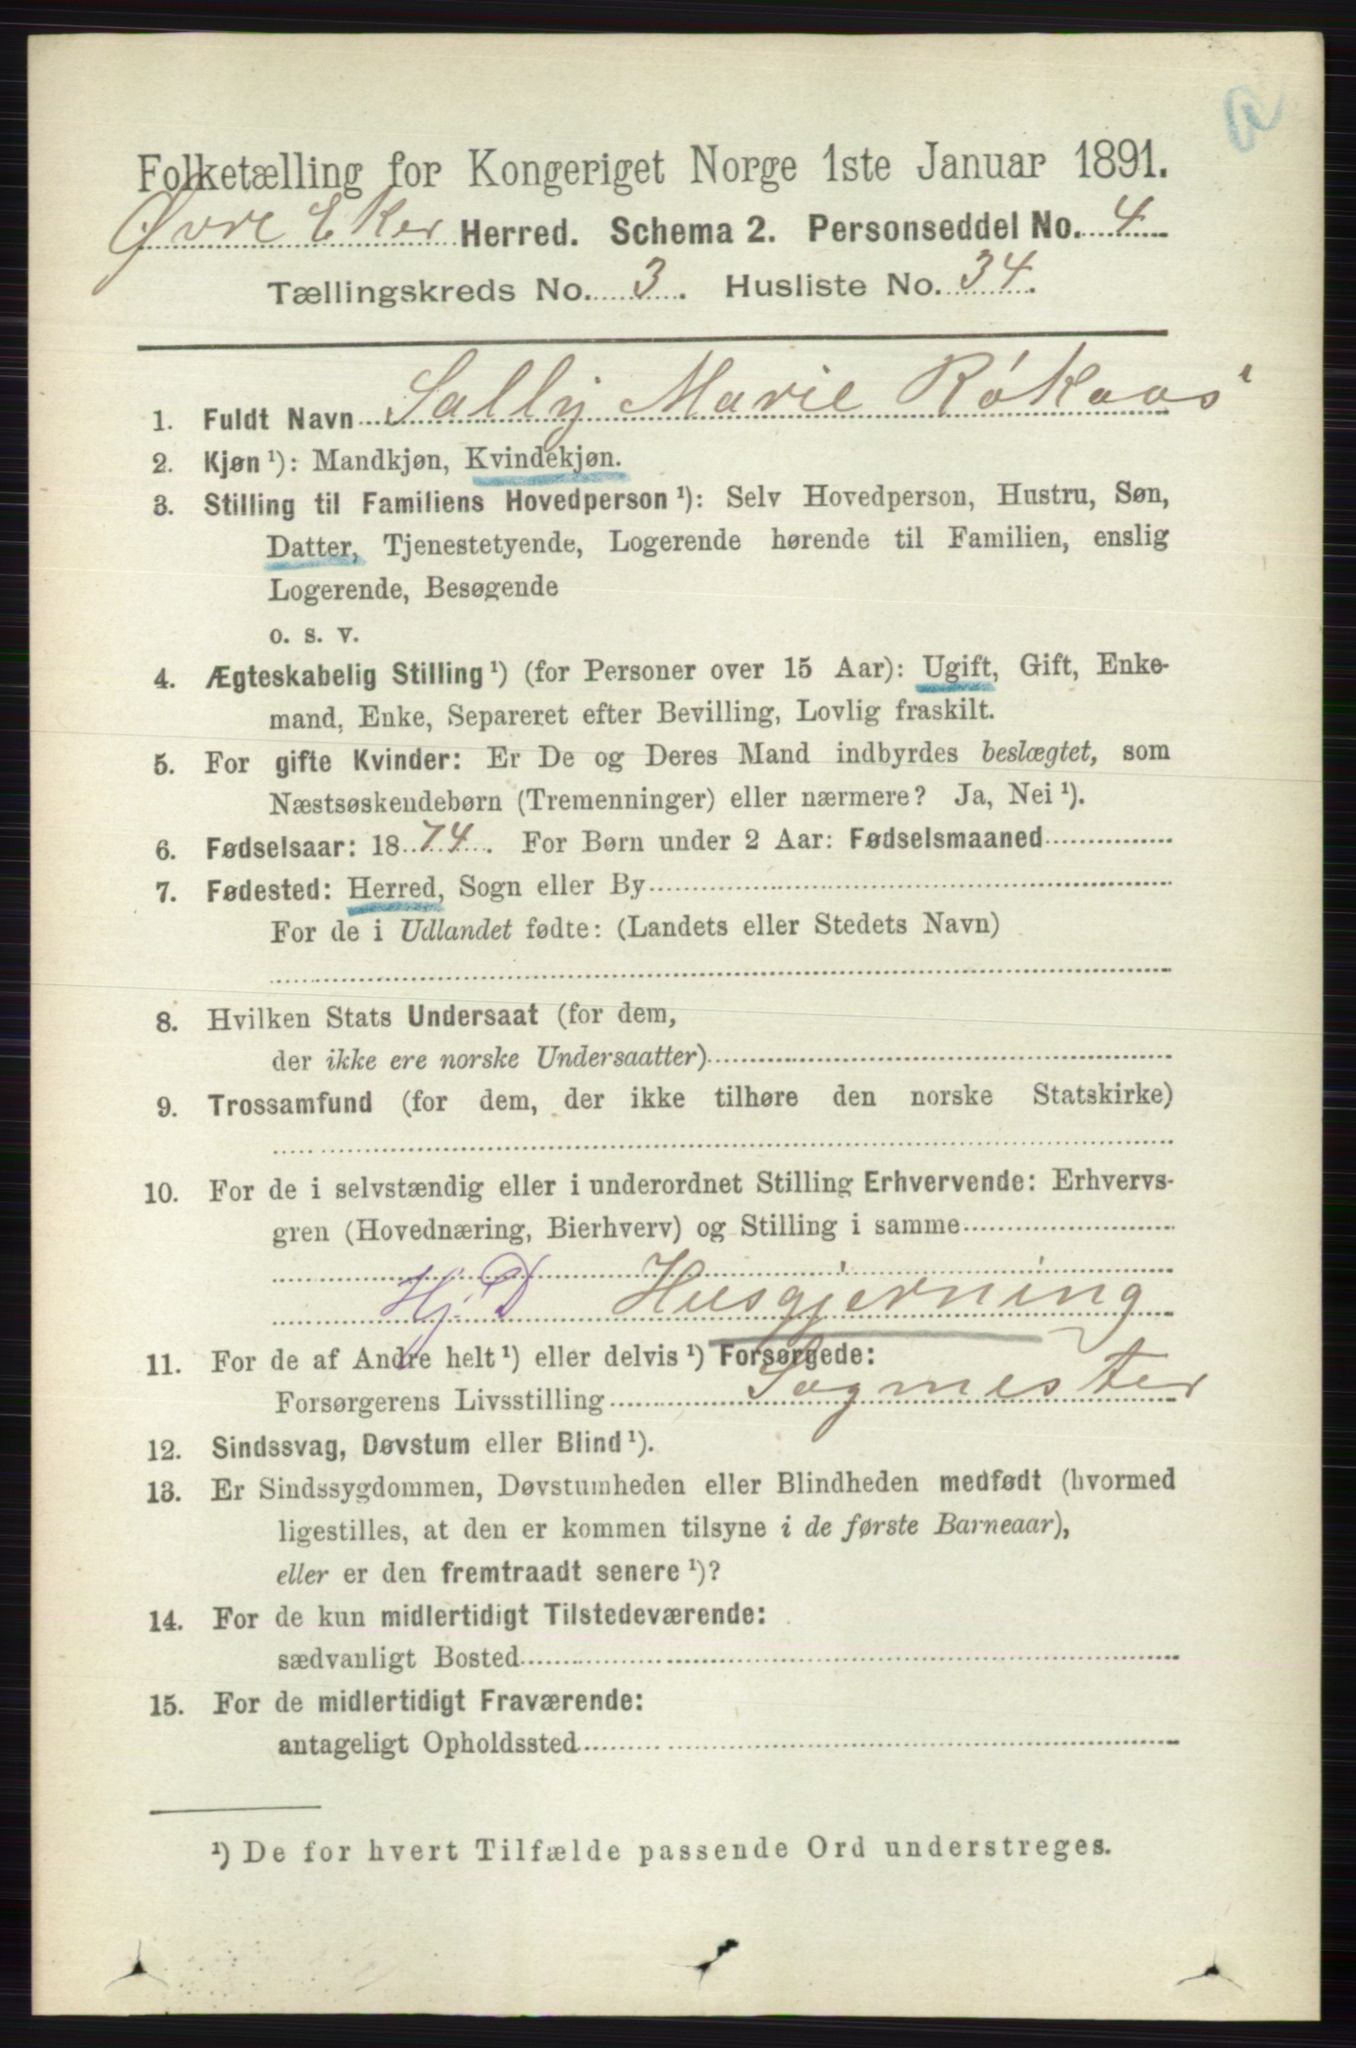 a
Folketælling for Kongeriget Norge 1ste Januar 1891.
Øvre Eker Herred. Schema 2. Personseddel No. 4
Tællingskreds No. 3. Husliste No. 34.
1. Fuldt Navn Sally Marie Rókaas
2. Kjøn ¹): Mandkjøn, Kvindekjøn.
3. Stilling til Familiens Hovedperson ¹): Selv Hovedperson, Hustru, Søn,
Datter, Tjenestetyende, Logerende hørende til Familien, enslig
Logerende, Besøgende
o. s. v.
4. Ægteskabelig Stilling ¹) (for Personer over 15 Aar): Ugift, Gift, Enke-
mand, Enke, Separeret efter Bevilling, Lovlig fraskilt.
5. For gifte Kvinder: Er De og Deres Mand indbyrdes beslægtet, som
Næstsøskendebørn (Tremenninger) eller nærmere? Ja, Nei ¹).
6. Fødselsaar: 1874. For Børn under 2 Aar: Fødselsmaaned
7. Fødested: Herred, Sogn eller By
For de i Udlandet fødte: (Landets eller Stedets Navn)
8. Hvilken Stats Undersaat (for dem,
der ikke ere norske Undersaatter)
9. Trossamfund (for dem, der ikke tilhøre den norske Statskirke)
10. For de i selvstændig eller i underordnet Stilling Erhvervende: Erhvervs-
gren (Hovednæring, Bierhverv) og Stilling i samme
Hj. D Husgjerning
11. For de af Andre helt ¹) eller delvis ¹) Forsørgede:
Forsørgerens Livsstilling Sagmester
12. Sindssvag, Døvstum eller Blind ¹).
13. Er Sindssygdommen, Døvstumheden eller Blindheden medfødt (hvormed
ligestilles, at den er kommen tilsyne i de første Barneaar),
eller er den fremtraadt senere ¹)?
14. For de kun midlertidigt Tilstedeværende:
sædvanligt Bosted
15. For de midlertidigt Fraværende:
antageligt Opholdssted
¹) De for hvert Tilfælde passende Ord understreges.